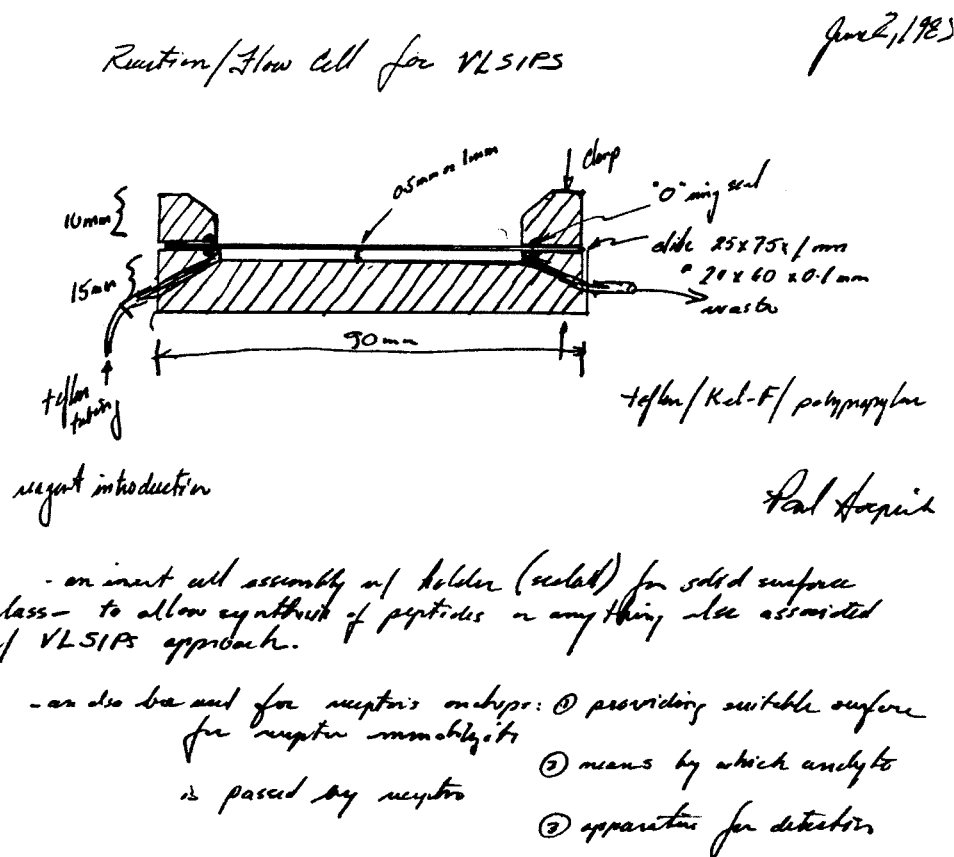 June 2, 198
Reaction/Flow Cell for VLSIPS
clamp
0.5mm or 1mm
"O" ring seal
10mm
slide 25x75x1mm
20 x 60 x 0.1mm
15mm
waste
90mm
teflon tubing
teflon/Kel-F/polypropylene
reagent introduction
Paul
- an inert cell assembly w/ holder (sealed) for solid surface
lass - to allow synthesis of peptides or anything else associated
/ VLSIPS approach.
- an also be used for receptors on chips: ① providing suitable surface
for receptor
② means by which analyte
is passed by receptor
③ apparatus for detection